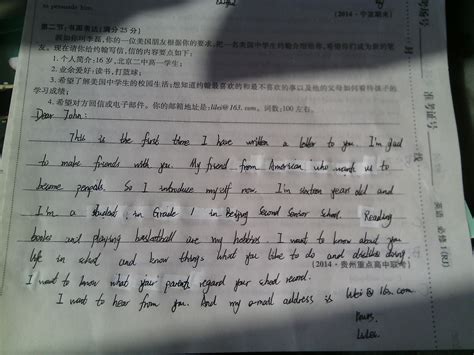 to persuade him.
(2014·宁波期末)
第二节:书面表达(满分25分)
假如你叫李磊,你的一位美国朋友根据你的要求,把一名美国中学生约翰介绍给你,希望你们成为新的笔友。现在请你给约翰写信,信的内容要包括:
1.个人简介:16岁,北京二中高一学生;
2.业余爱好:读书,打篮球;
3.希望了解美国中学生的校园生活:想知道约翰最喜欢的和最不喜欢的事以及他的父母如何看待孩子的学习成绩;
4.希望对方回信或电子邮件。你的邮箱地址是:lilei@163.com。词数:100左右。
Dear John:
This is the first time I have written a letter to you. I'm glad
to make friends with you. My friend from American who wants us to
become penpals. So I introduce myself now. I'm sixteen years old and
I'm a student in Grade 1 in Beijing Second Senior School. Reading
books and playing basketball are my hobbies. I want to know about your
life in school and know things what you like to do and dislike doing.
(2014·贵州重点高中联考)
I want to know what your parents regard your school record.
I want to hear from you. And my e-mail address is lilei@163.com.
Yours,
Lilei
准考证号
英语 必修1(RJ)